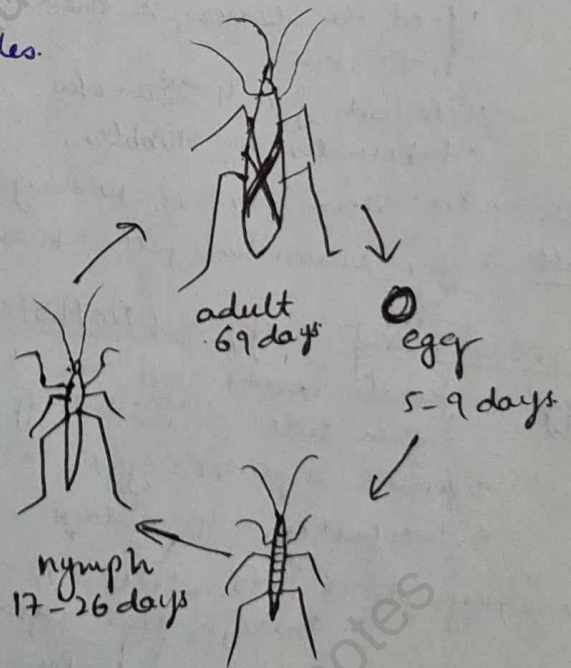 les.
adult
69 days
egg
5-9 days
nymph
17-26 days
otes